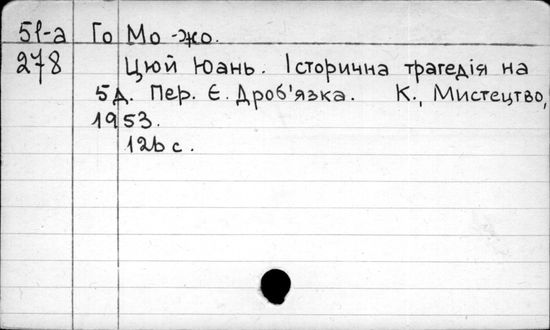 51-а Го Мо-жо.
278 Цюй Юань. Історична трагедія на
5д. Пер. Є. Дроб'язка. К., Мистецтво,
1953.
126 с.